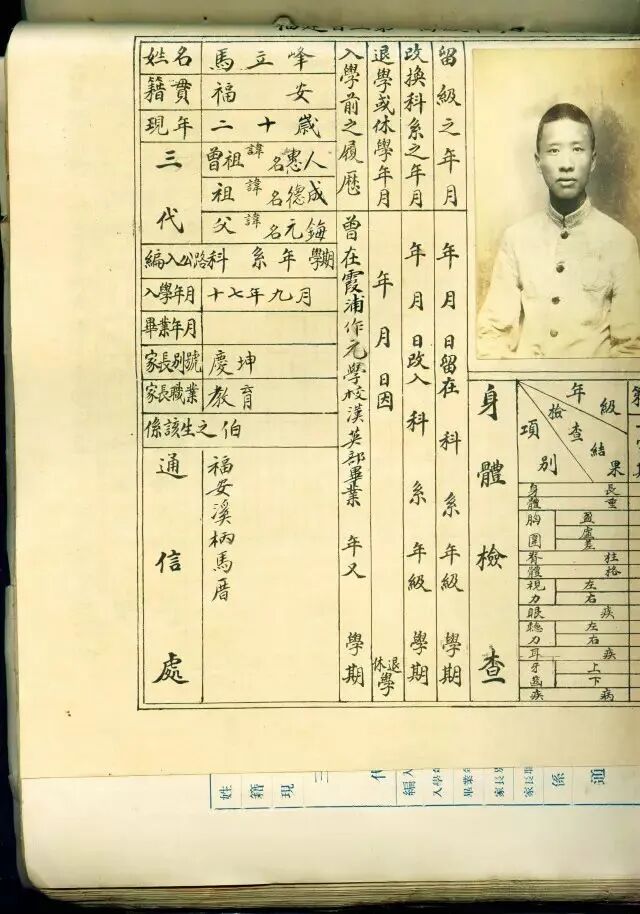 姓名 馬立峰
籍貫 福安
現年 二十歲
三代
曾祖 諱名 惠人
祖 諱名 德成
父 諱名 元鋂
編入公路科 系 年 學期
入學年月 十七年九月
畢業年月
家長別號 慶坤
家長職業 教育
係該生之伯
通信處
福安溪柄馬厝
入學前之履歷
曾在霞浦作元學校漢英部畢業 年又 學期
退學或休學年月
年 月 日因 休退學
改換科系之年月
年 月 日改入 科 系 年級 學期
留級之年月
年 月 日留在 科 系 年級 學期
身體檢查
年級
檢查結果
項別
身體 長重
胸圍 盈虛差
脊體 柱格
視力 左右
眼疾
聽力 左右
耳疾
牙齒 上下
疾病
第
學期
姓
籍
現
三
代
編入
入學年
畢業年
家長別
家長職
係
通